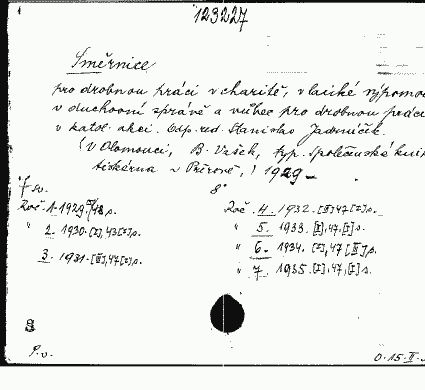 123227
Směrnice
pro drobnou práci v charitě, v laické výpomoci
v duchovní správě a vůbec pro drobnou práci
v katol. akci. Odp. red. Stanislav Jadrníček.
(V Olomouci, B. Vašek, typ. Společenská knih
tiskárna v Přerově,) 1929-
8°
7 sv.
Roč. 1. 1929 48 s.
" 2. 1930. [I], 43 [I] s.
3. 1931. [III], 47 [I] s.
Roč. 4. 1932. [II] 47 [I] s.
" 5. 1933. [I], 47, [I] s.
" 6. 1934. [I], 47 [II] s.
" 7. 1935. [I], 47, [I] s.
P. v.
0.15.II.